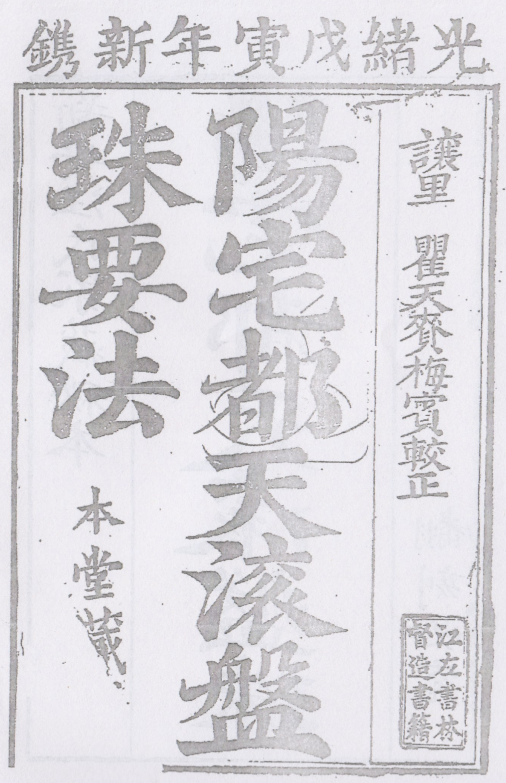 光緒戊寅年新鐫
讓里 瞿天賚梅賓較正
江左書林
督造書籍
陽宅都天滚盤
珠要法
本堂藏